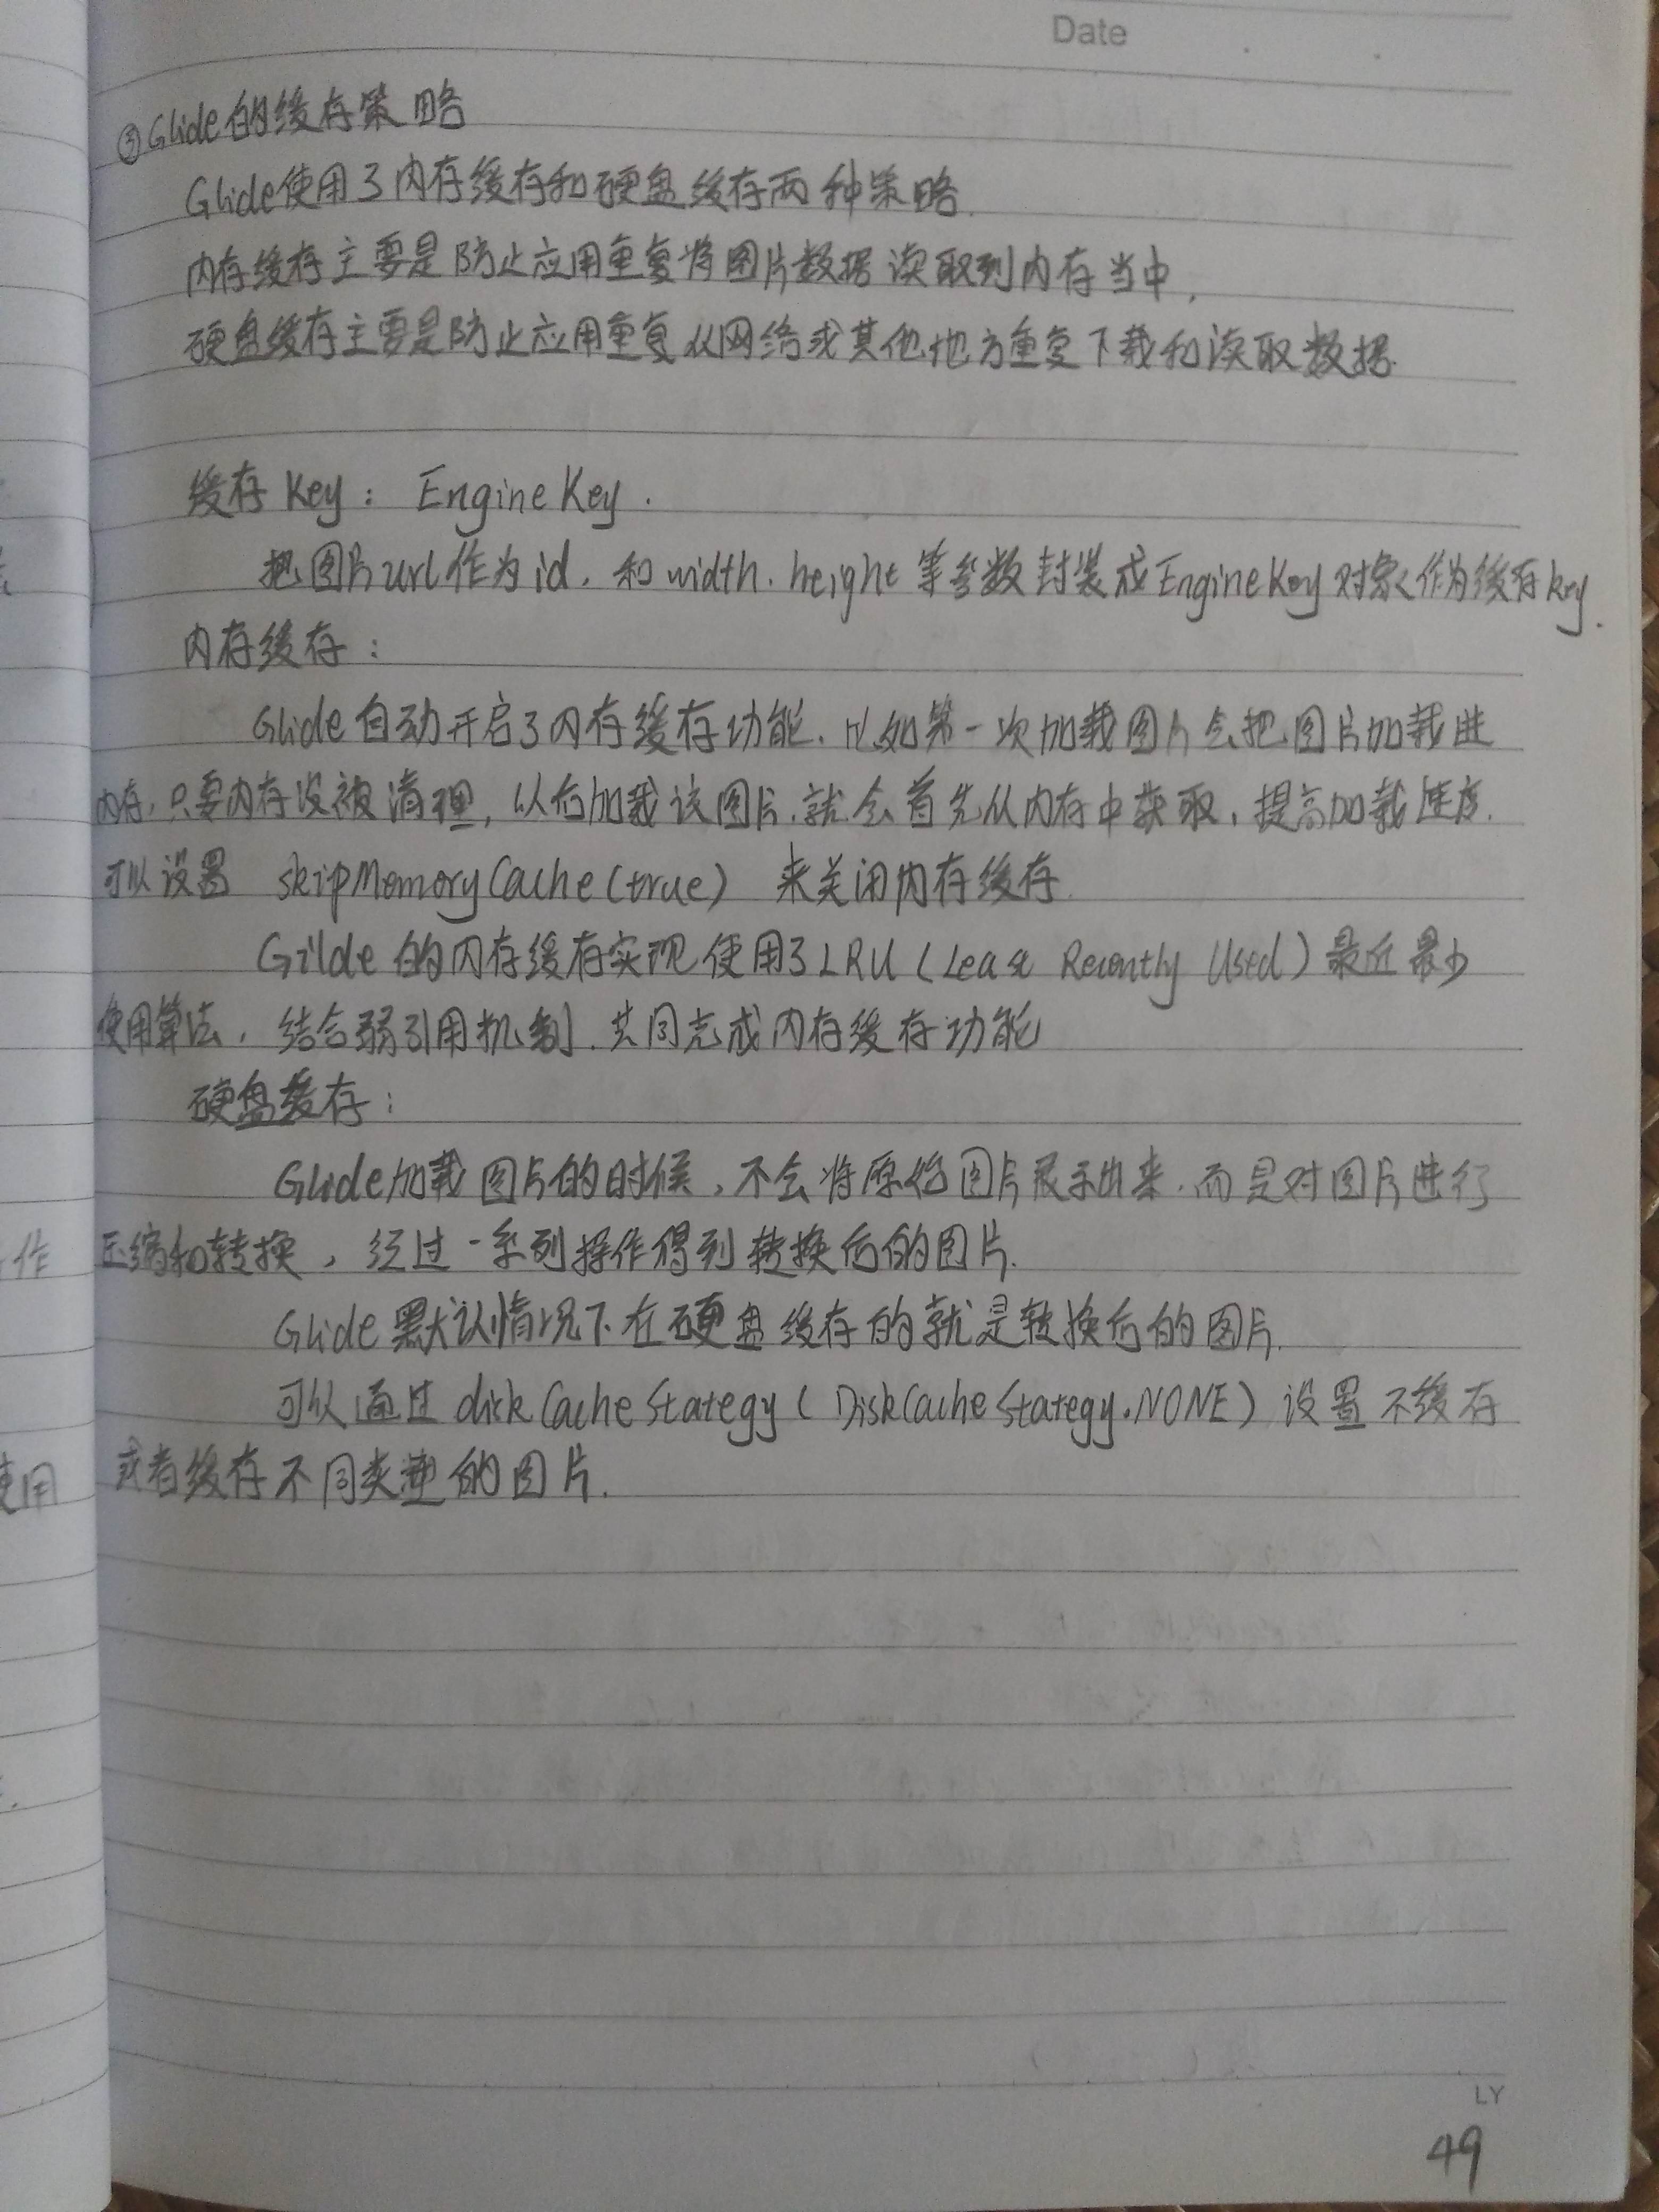 Date
③Glide的缓存策略
Glide使用了内存缓存和硬盘缓存两种策略.
内存缓存主要是防止应用重复将图片数据读取到内存当中,
硬盘缓存主要是防止应用重复从网络或其他地方重复下载和读取数据.
缓存Key: EngineKey.
把图片url作为id, 和width, height等参数封装成EngineKey对象作为缓存key.
内存缓存:
Glide自动开启了内存缓存功能, 比如第一次加载图片会把图片加载进
内存, 只要内存没被清理, 以后加载该图片, 就会首先从内存中获取, 提高加载速度.
可以设置 skipMemoryCache(true) 来关闭内存缓存
Gilde的内存缓存实现使用了LRU (Least Recently Used) 最近最少
使用算法, 结合弱引用机制, 共同完成内存缓存功能
硬盘缓存:
Glide加载图片的时候, 不会将原始图片展示出来, 而是对图片进行
作 压缩和转换, 经过一系列操作得到转换后的图片.
Glide默认情况下在硬盘缓存的就是转换后的图片.
可以通过 diskCacheStategy ( DiskCacheStategy.NONE) 设置不缓存
使用 或者缓存不同类型的图片.
LY
49